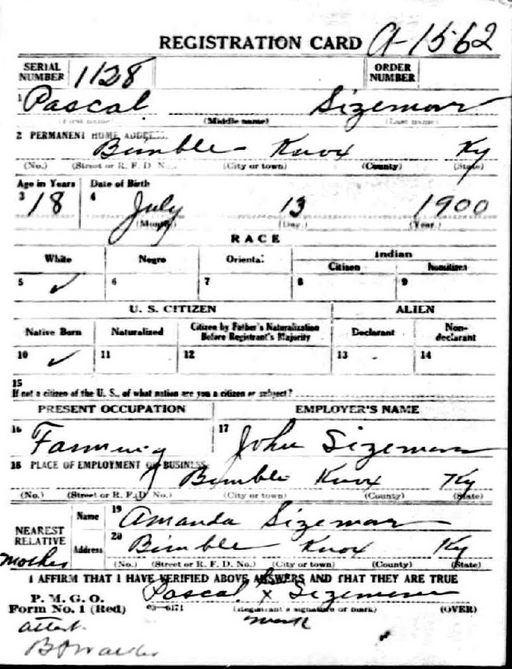 REGISTRATION CARD A-1562
SERIAL NUMBER 1128 ORDER NUMBER
1 Pascal Sizemore
(First name) (Middle name) (Last name)
2 PERMANENT HOME ADDRESS
Bimble Knox Ky
(No.) (Street or R. F. D. No.) (City or town) (County) (State)
Age in Years Date of Birth
3 18 4 July 13 1900
(Month) (Day) (Year)
RACE
White Negro Oriental Indian
Citizen Noncitizen
5 ✓ 6 7 8 9
U. S. CITIZEN ALIEN
Native Born Naturalized Citizen by Father's Naturalization Before Registrant's Majority Declarant Non-declarant
10 ✓ 11 12 13 14
15
If not a citizen of the U. S., of what nation are you a citizen or subject?
PRESENT OCCUPATION EMPLOYER'S NAME
16 Farming 17 John Sizemore
18 PLACE OF EMPLOYMENT OR BUSINESS
Bimble Knox Ky
(No.) (Street or R. F. D. No.) (City or town) (County) (State)
NEAREST RELATIVE Name 19 Amanda Sizemore
Mother Address 20 Bimble Knox Ky
(No.) (Street or R. F. D. No.) (City or town) (County) (State)
I AFFIRM THAT I HAVE VERIFIED ABOVE ANSWERS AND THAT THEY ARE TRUE
Pascal x Sizemore
P. M. G. O.
Form No. 1 (Red) 03-6171 (Registrant's signature or mark) (OVER)
mark
attest